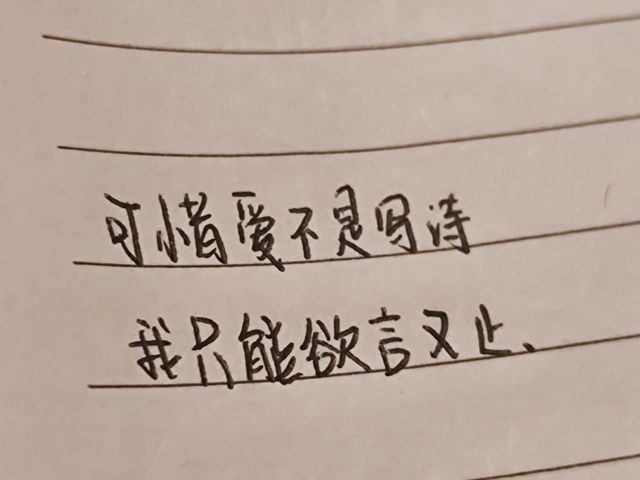 可惜爱不是写诗
我只能欲言又止、